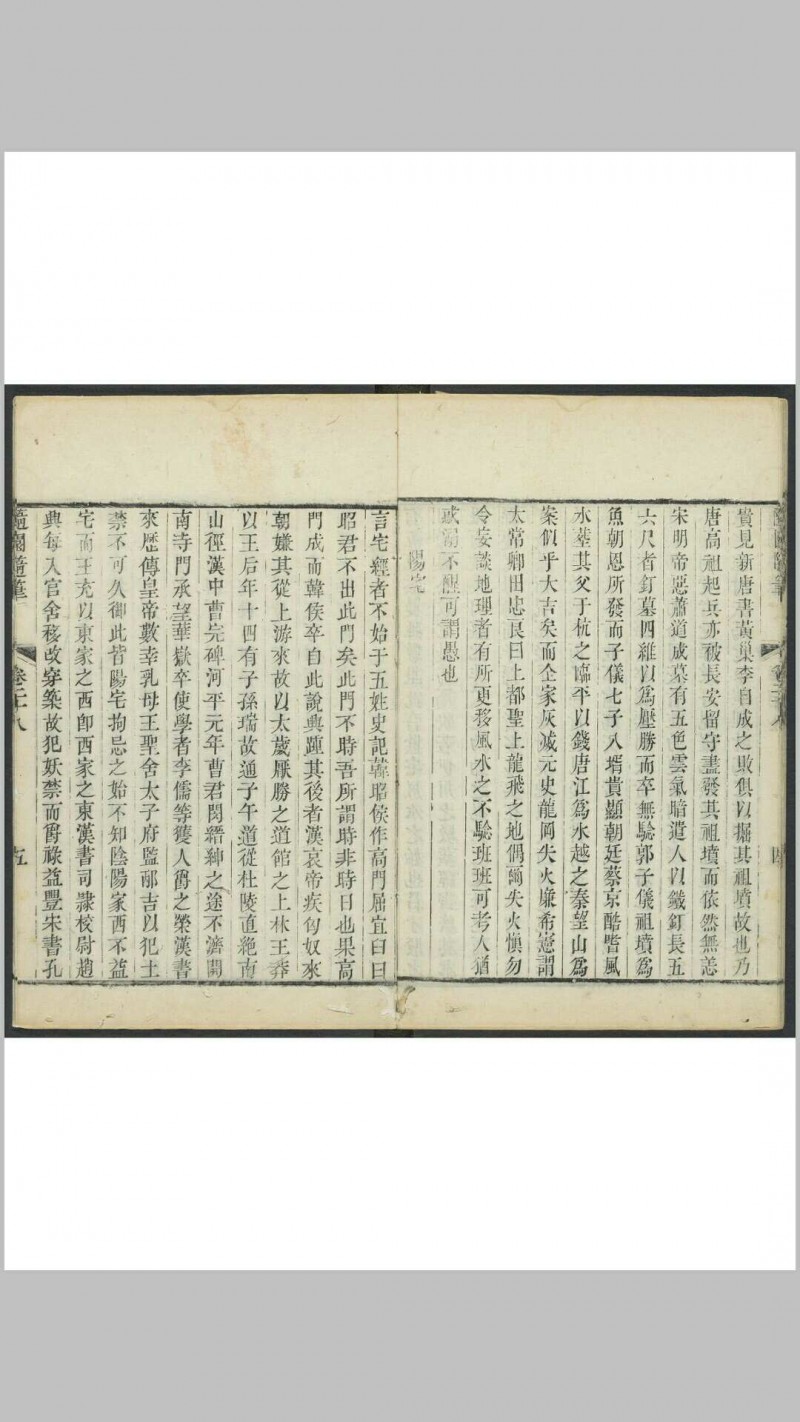 貴見新唐書黃巢李自成之敗俱以掘其祖墳故也乃
唐高祖起兵亦被長安留守盡發其祖墳而依然無恙
宋明帝惡蕭道成墓有五色雲氣暗遣人以鐵釘長五
六尺者釘墓四維以爲壓勝而卒無驗郭子儀祖墳爲
魚朝恩所發而子儀七子八壻貴顯朝廷蔡京酷嗜風
水葬其父于杭之臨平以錢唐江爲水越之秦望山爲
案似乎大吉矣而全家灰滅元史龍岡失火廉希憲謂
太常卿田忠良曰上都聖上龍飛之地偶爾失火愼勿
令妄談地理者有所更移風水之不騐班班可考人猶
或溺不經可謂愚也
陽宅
言宅經者不始于五姓史記韓昭侯作高門屈宜臼曰
昭君不出此門矣此門不時吾所謂時非時日也果高
門成而韓侯卒自此說興踵其後者漢哀帝疾匈奴來
朝嫌其從上游來故以太歲厭勝之道館之上林王莽
以王后年十四有子孫瑞故通子午道從杜陵直絕南
山徑漢中曹完碑河平元年曹君閔縉紳之途不濟開
南寺門承望華嶽卒使學者李儒等獲人爵之榮漢書
來歷傳皇帝數幸乳母王聖舍太子府監邴吉以犯土
禁不可久御此皆陽宅拘忌之始不知陰陽家西不益
宅而王充以東家之西卽西家之東漢書司隷校尉趙
典每入官舍移改穿築故犯妖禁而爵祿益豐宋書孔
隨園隨筆
卷二十八
五